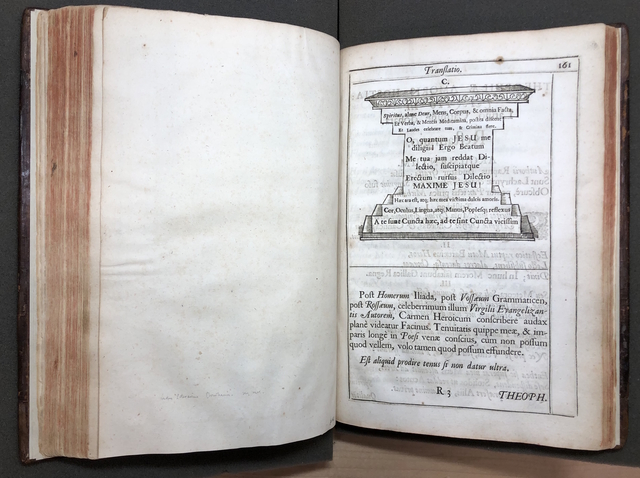 Translatio.
161
C.
Spiritus, alme Deus, Mens, Corpus, & omnia Facta,
Et Verba, & Mentis Meditamina, poscunt
Et Laudes celebrare tuas, & Crimina flere.
O, quantum JESU me
diligis! Ergo Beatum
Me tua jam reddat Di-
lectio, suscipiatque
Erectum rursus Dilectio
MAXIME JESU!
Hæc ara est, atq; hæc mea victima dulcis amoris.
Cor, Oculus, Lingua, atq; Manus, Poplesq; reflexus
A te sunt Cuncta hæc, ad te sint Cuncta vicissim
Post Homerum Iliada, post Vossæum Grammaticen,
post Rossæum, celeberrimum illum Virgilii Evangelizan-
tis Autorem, Carmen Heroicum conscribere audax
planè videatur Facinus. Tenuitatis quippe meæ, & im-
paris longè in Poesi venæ conscius, cum non possum
quod vellem, volo tamen quod possum effundere.
Est aliquid prodire tenus si non datur ultra.
R 3
THEOPH.